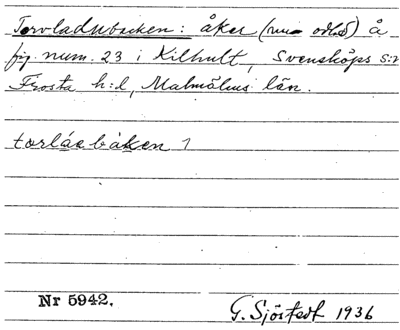 Torvladubacken: åker (nu odlad) å
fig. num. 23 i Kilhult, Svensköps s:n
Frosta h:d, Malmöhus län.
torláebàken 1
Nr 5942.
G. Sjöstedt 1936